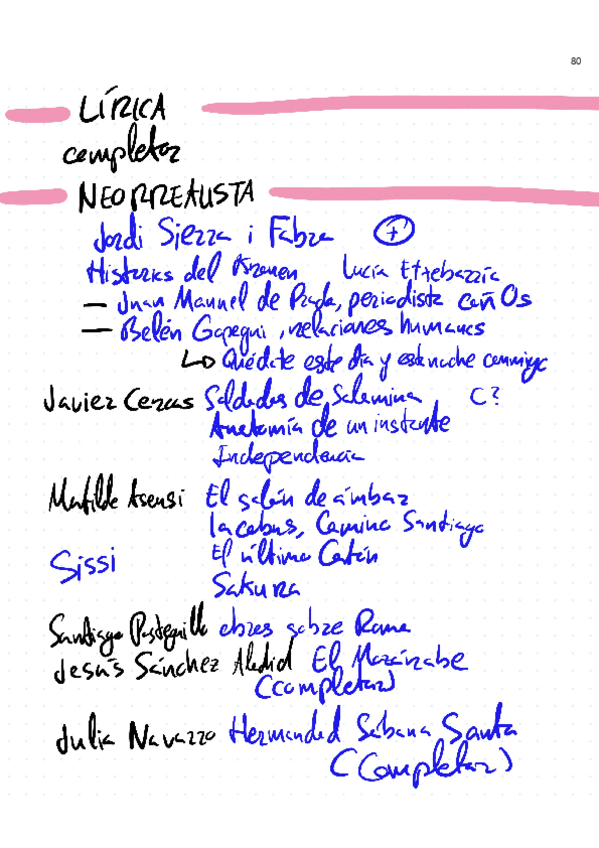 80
LÍRICA
completar
NEORREALISTA
Jordi Sierra i Fabra +
Historias del Kronen Lucía Etxebarria
- Juan Manuel de Prada, periodista
- Belén Gopegui, relaciones humanas
↳ Quédate este día y esta noche conmigo
Javier Cercas Soldados de Salamina C?
Anatomía de un instante
Independencia
Matilde Asensi El salón de ámbar
Iacobus, Camino Santiago
Sissi El último Catón
Sakura
Santiago Posteguillo obras sobre Roma
Jesús Sánchez Adalid El Mozárabe
(completar)
Julia Navarro Hermandad Sábana Santa
(Completar)